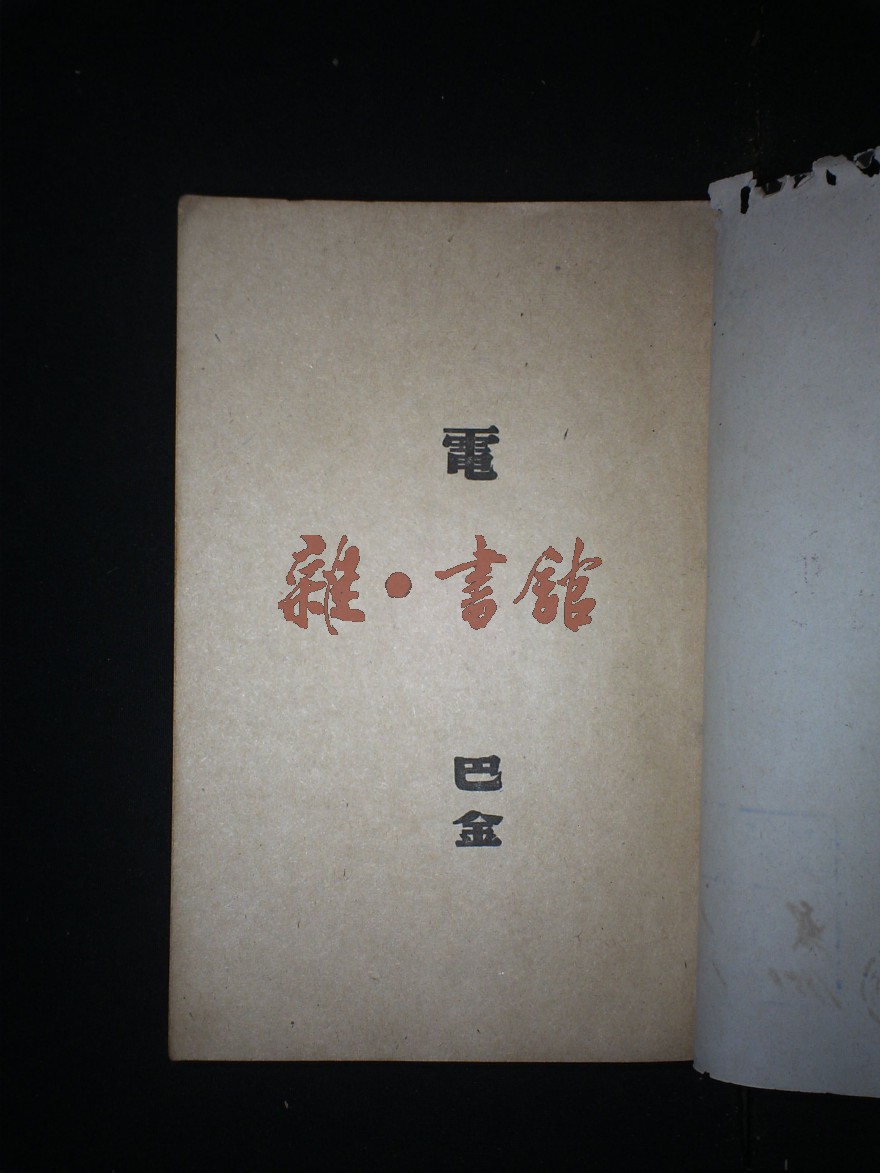 電
雜·書館
巴金